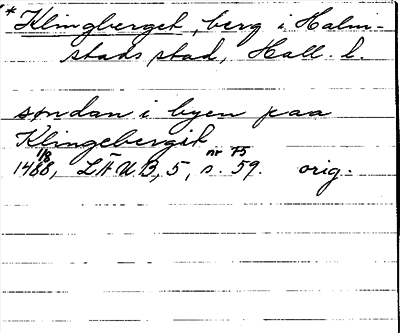 * Klingberget, berg i Halm-
stads stad, Hall. l.
søndan i byen paa
Klingebergit
1/8 nr 75
1488, LÄUB, 5, s. 59. orig.